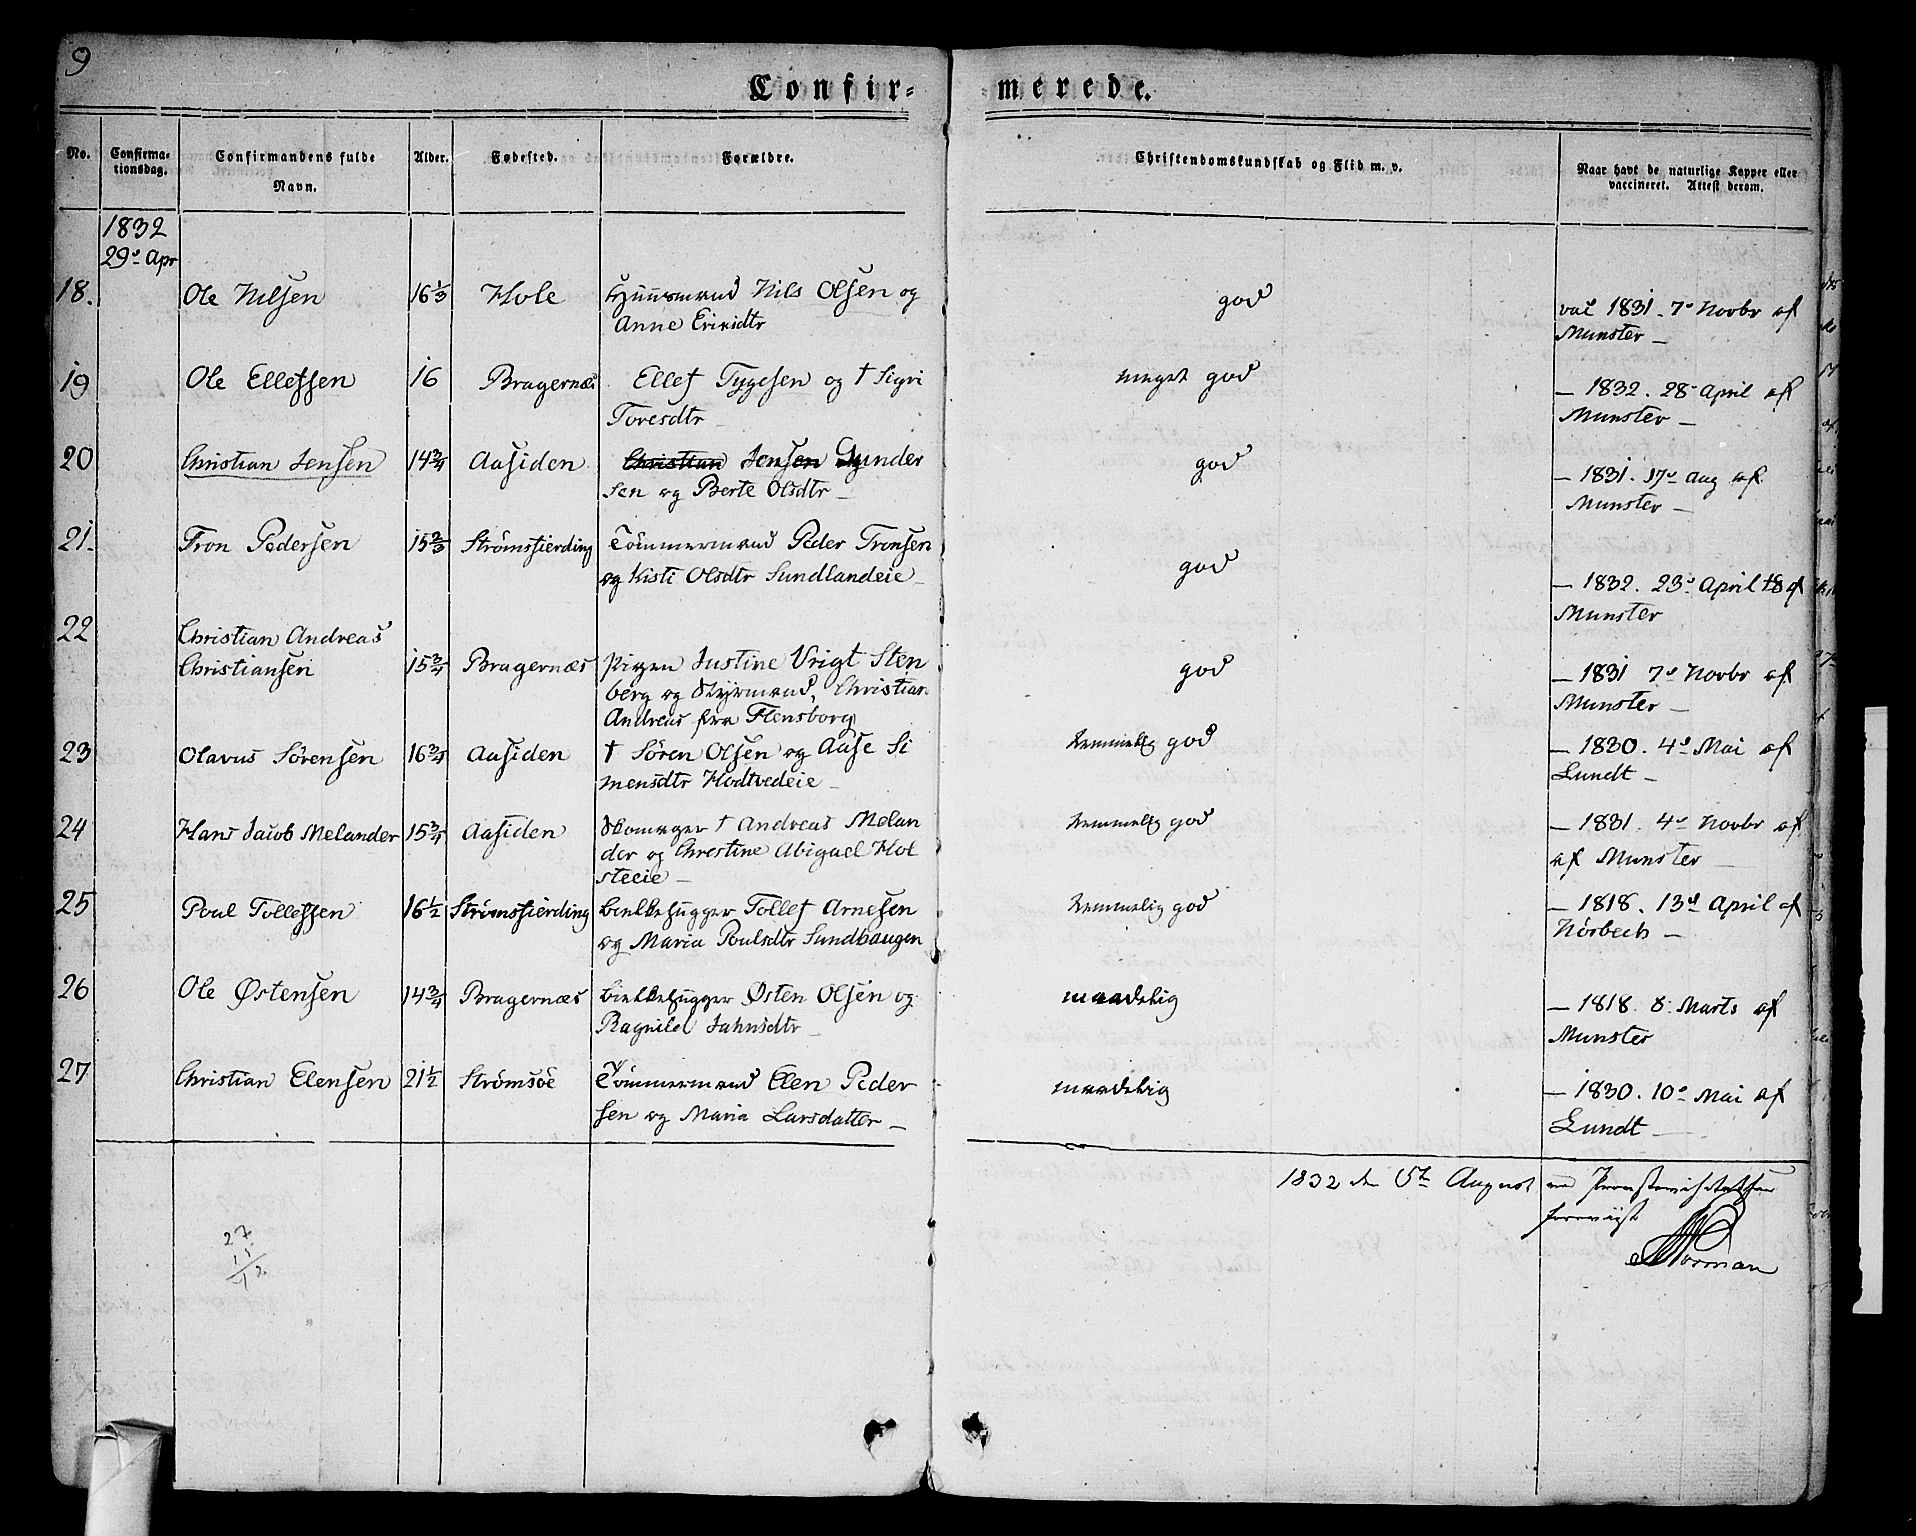 9
Confir- merede.
No. Confirma- tionsdag. Confirmandens fulde Navn. Alder. Fødested. Forældre. Christendomskundskab og Flid m. v. Naar havt de naturlige Kopper eller vaccineret. Attest derom.
1832
29de Apr
18. Ole Nilsen 16 1/3 Hole Huusmand Nils Olsen og god vac 1831. 7de Novbr af
Anne Ericidtr Munster —
19 Ole Ellefsen 16 Bragernæs Ellef Tygesen og † Sigri meget god — 1832. 28 April af
Toresdtr Munster —
20 Christian Jensen 14 3/4 Aasiden Christian Jensen Gunder god — 1831. 17de Aug af
sen og Berte Olsdtr — Munster —
21. Tron Pedersen 15 2/3 Strømsfierding Tömmermand Peder Tronsen god — 1832. 23de April 18 af
og Kisti Olsdtr Sundlandeie — Munster
22 Christian Andreas
Christiansen 15 3/4 Bragernæs Pigen Justine Vrigt Sten god — 1831 7de Novbr af
berg og Styrmand, Christian Munster —
Andreas fra Flensborg
23 Olavus Sörensen 16 3/4 Aasiden † Sören Olsen og Aase Si temmelig god — 1830. 4de Mai af
mensdtr Hodtvedeie — Lundt —
24 Hans Jacob Melander 15 3/4 Aasiden Skomager † Andreas Melan temmelig god — 1831. 4de Novbr af
der og Chrestine Abigael Hol af Munster —
steeie —
25 Poul Tollefsen 16 1/2 Strømsfierding Bielkehugger Tollef Arnesen temmelig god — 1818. 13de April af
og Maria Poulsdtr Sundhaugen Nörbech —
26 Ole Østensen 14 3/4 Bragernæs Bielkehugger Østen Olsen og maadelig — 1818. 8. Marts af
Ragnild Jahnsdtr — Munster
27 Christian Elensen 21 1/2 Strømsöe Tömmermand Elen Peder maadelig — 1830. 10de Mai af
sen og Maria Larsdatter — Lundt —
1832 den 5te August ved Provstevisitatsen
foreviist
Norman
27